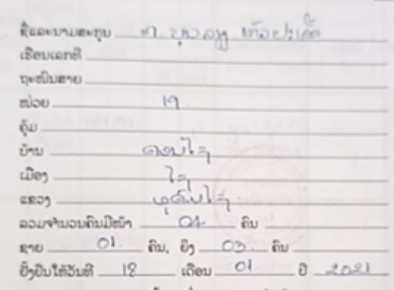 ຊື່ແລະນາມສະກຸນ ທ.
ເຮືອນເລກທີ
ຖະໜົນສາຍ
ໜ່ວຍ 19
ຄຸ້ມ
ບ້ານ ດອນໄຊ
ເມືອງ ໄຊ
ແຂວງ ອຸດົມໄຊ
ລວມຈຳນວນຄົນມີໜ້າ 04 ຄົນ
ຊາຍ 01 ຄົນ, ຍິງ 03 ຄົນ
ຢັ້ງຢືນໃຫ້ວັນທີ 18 ເດືອນ 01 ປີ 2021